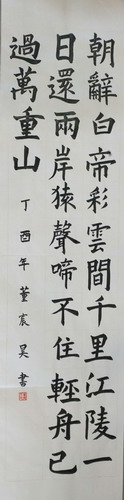 朝辭白帝彩雲間千里江陵一
日還兩岸猿聲啼不住輕舟已
過萬重山
丁酉年董宸昊書